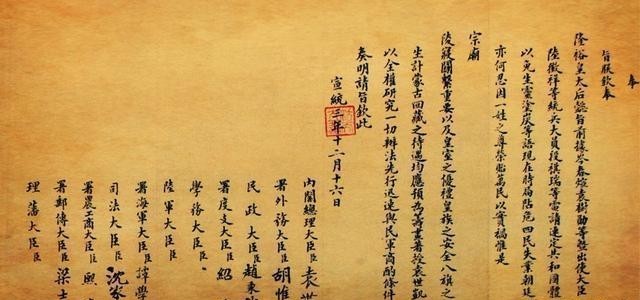 奉
旨朕欽奉
隆裕皇太后懿旨前據岑春煊袁樹勛等暨出使大臣
陸徵祥等統兵大員段祺瑞等電請速定共和國體
以免生靈塗炭等語現在時局阽危四民失業朝廷
亦何忍因一姓之尊榮貽萬民以實禍惟是
宗廟
陵寢關繫重要以及皇室之優禮皇族之安全八旗之
生計蒙古回藏之待遇均應預為籌畫著授袁世凱
以全權研究一切辦法先行迅速與民軍商酌條件
奏明請旨欽此
宣統三年十二月十六日
內閣總理大臣臣袁世
署外務大臣臣胡惟
民政大臣臣趙秉
署度支大臣臣紹
學務大臣臣
陸軍大臣臣
署海軍大臣臣譚學
司法大臣臣沈家
署農工商大臣臣熙
署郵傳大臣臣梁士
理藩大臣臣